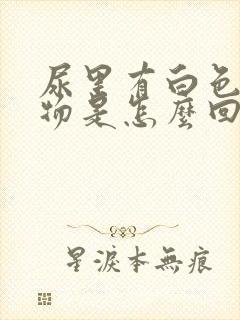 尿里有白色
物是怎麼回
星淚本無痕